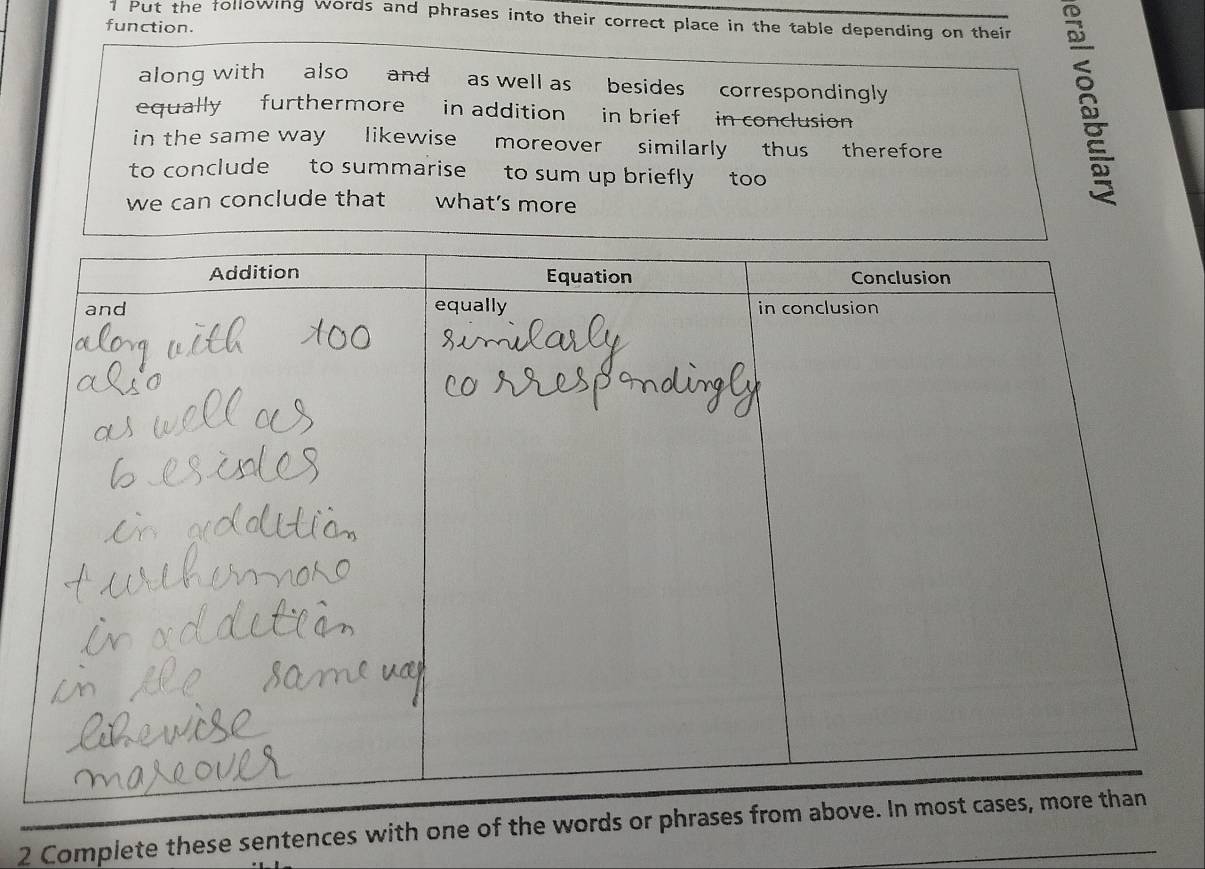 1 Put the following words and phrases into their correct place in the table depending on their
function.
along with also and as well as besides correspondingly
equally furthermore in addition in brief in conclusion
in the same way likewise moreover similarly thus therefore
to conclude to summarise to sum up briefly too
we can conclude that what's more
Addition Equation Conclusion
and equally in conclusion
along with too similarly
also correspondingly
as well as
besides
in addition
furthermore
in addition
in the same way
likewise
mareover
2 Complete these sentences with one of the words or phrases from above. In most cases, more than
eral vocabulary